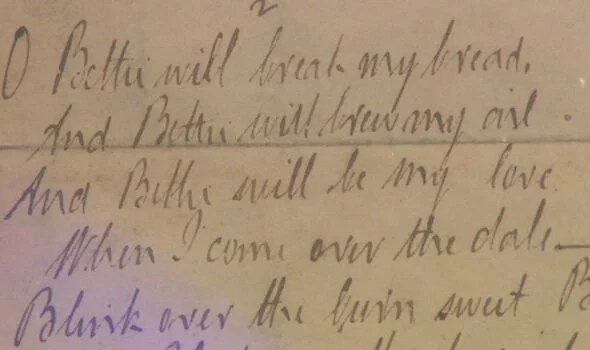 2
O Bettie will break my bread,
And Bettie will brew my ail.
And Bettie will be my love
When I come over the dale—
Blink over the burn sweet B